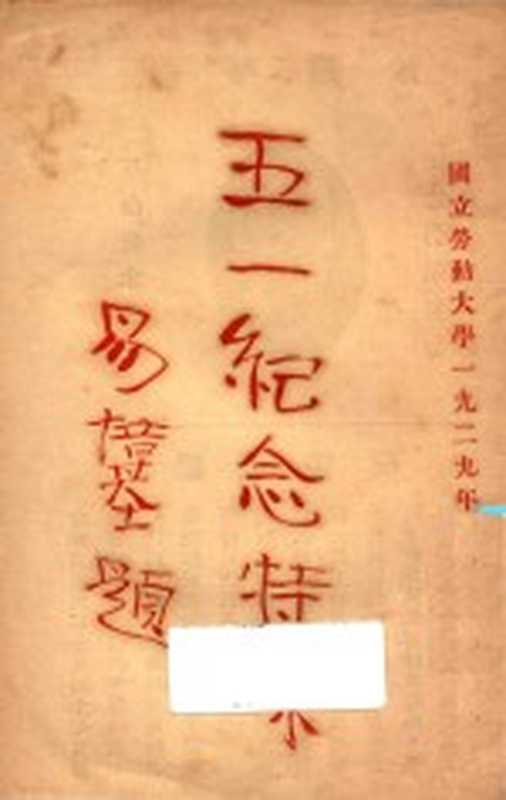 國立勞動大學一九二九年
五一紀念特
易培基題